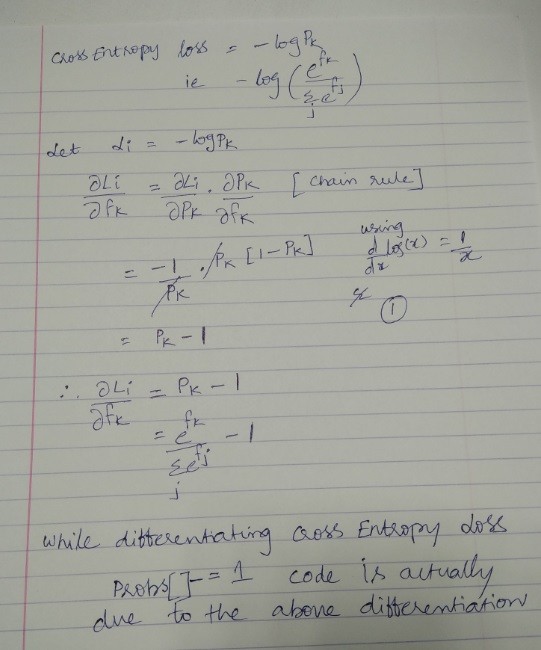 Cross Entropy loss = - log Pk
ie - log ( e^fk / Σj e^fj )
Let Li = - log Pk
∂Li / ∂fk = ∂Li / ∂Pk . ∂Pk / ∂fk [chain rule]
= -1 / Pk . Pk [1 - Pk]
using
d/dx log(x) = 1/x
& ①
= Pk - 1
∴ ∂Li / ∂fk = Pk - 1
= e^fk / Σj e^fj - 1
while differentiating Cross Entropy loss
Probs[ ] -= 1 code is actually
due to the above differentiation